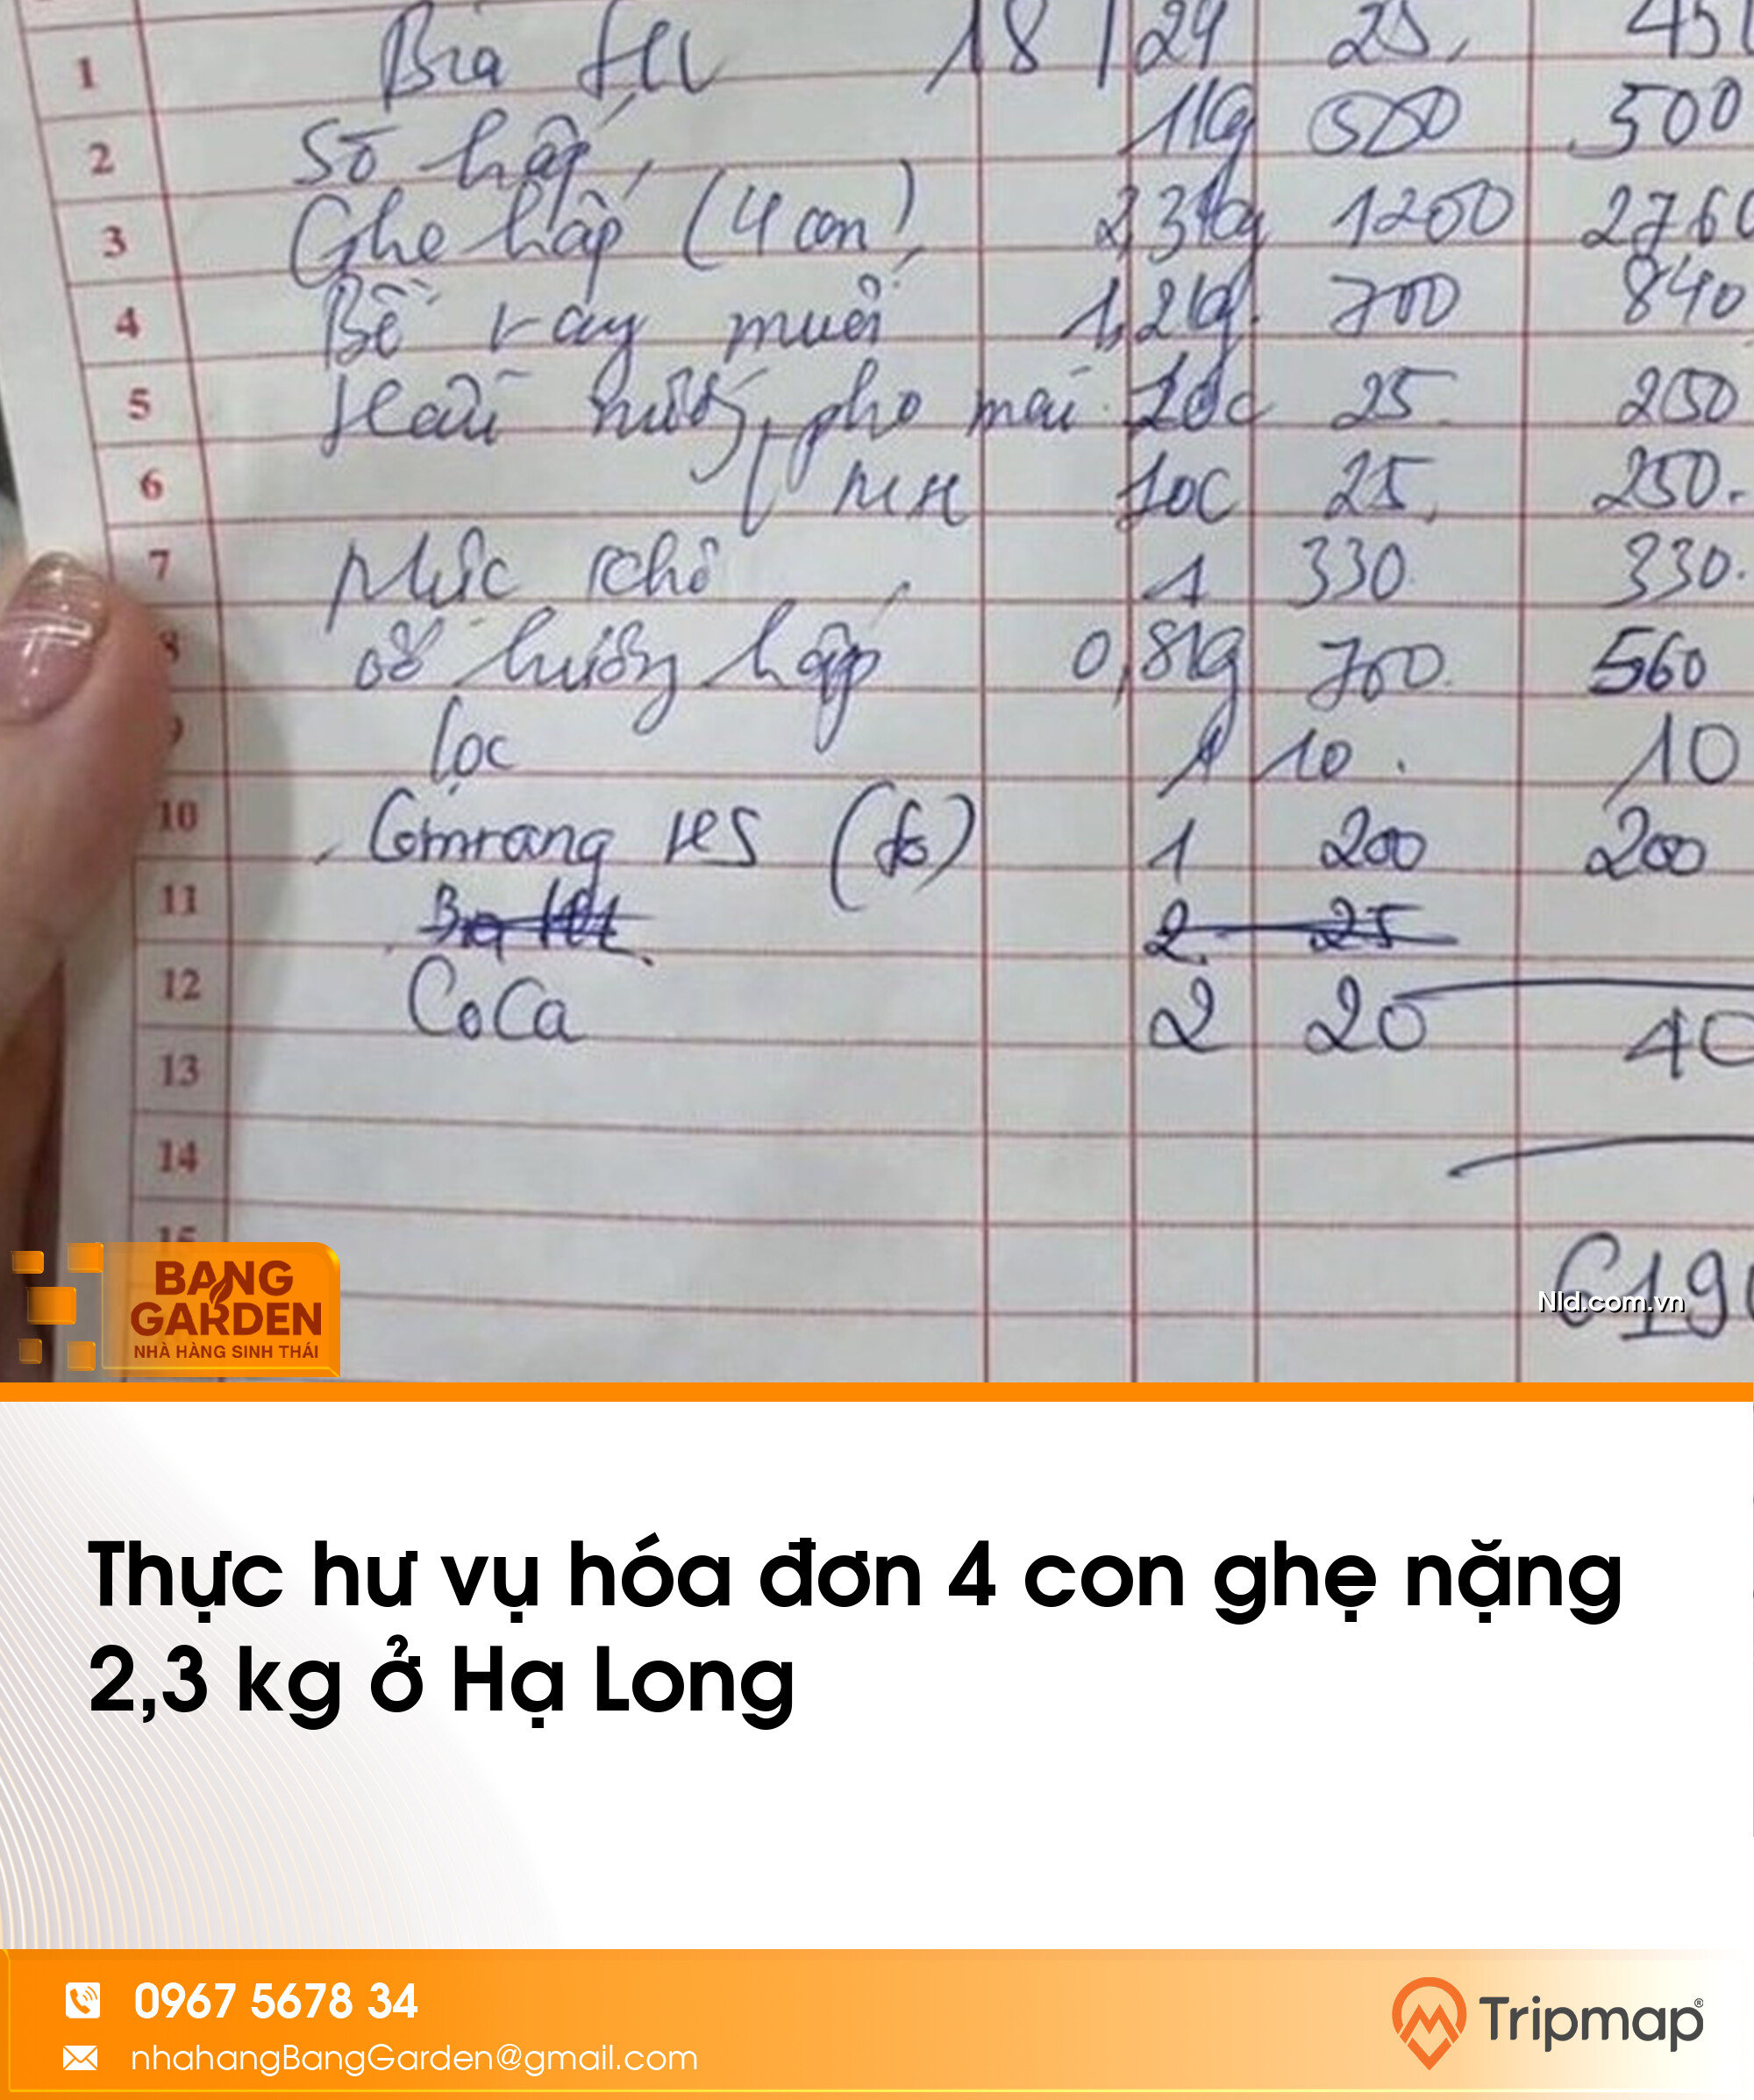 1 Bia HL 18 | 24 25, 450
2 Sò hấp, 1kg 500 500
3 Ghẹ hấp (4 con) 2,3kg 1200 2760
4 Bề rang muối 1,2kg. 700 840
5 Hàu nướng pho mai 10c 25 250
6 MH 10c 25, 250.
7 Mực khô 1 330 330.
8 ốc hương hấp 0,8kg 700 560
lọc 1 10. 10
10 Cơm rang HS 1 200 200
11 Bia 2 25
12 CoCa 2 20 40
13
14
15
6190
Nld.com.vn
BANG
GARDEN
NHÀ HÀNG SINH THÁI
Thực hư vụ hóa đơn 4 con ghẹ nặng
2,3 kg ở Hạ Long
0967 5678 34
nhahangBangGarden@gmail.com
Tripmap®